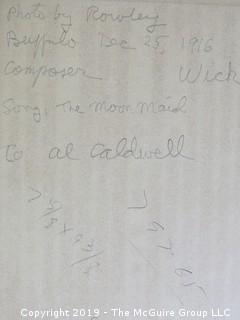 Photo by Rowley
Buffulo Dec 25, 1916
Composer Wick
Song, The Moon Maid
to al Caldwell
7 5/8 x 9 3/8
Copyright 2019 - The McGuire Group LLC